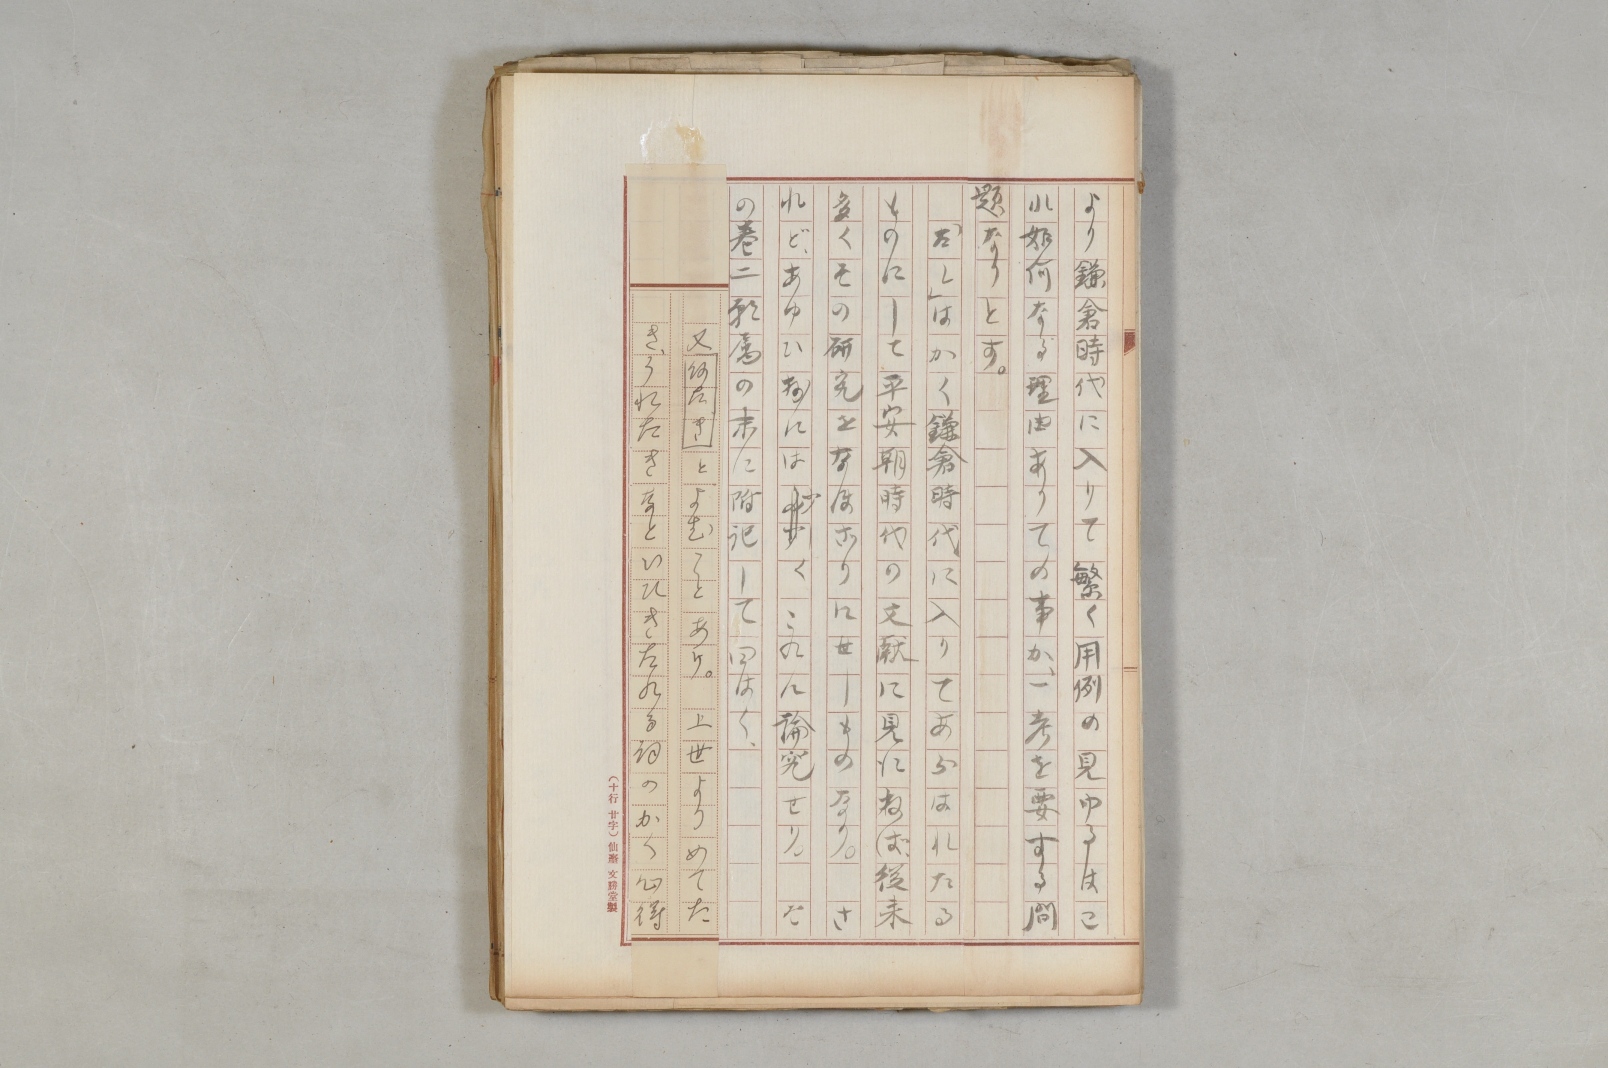 より鎌倉時代に入りて繁く用例の見ゆるはこ
れ如何なる理由ありての事か、一考を要する問
題なりとす。
「たし」はかく鎌倉時代に入りてあらはれたる
ものにして平安朝時代の文献に見えねば、従来
多くその研究をなほざりにせしものなり。さ
れど、あゆひ抄には くこれに論究せり。そ
の巻二 属の末に附記して曰はく、
又 たき とよむことあり。上世よりめてた
き、うれたきなといひきたれる詞のかく心得
(十行 廿字) 仙臺 文勝堂製